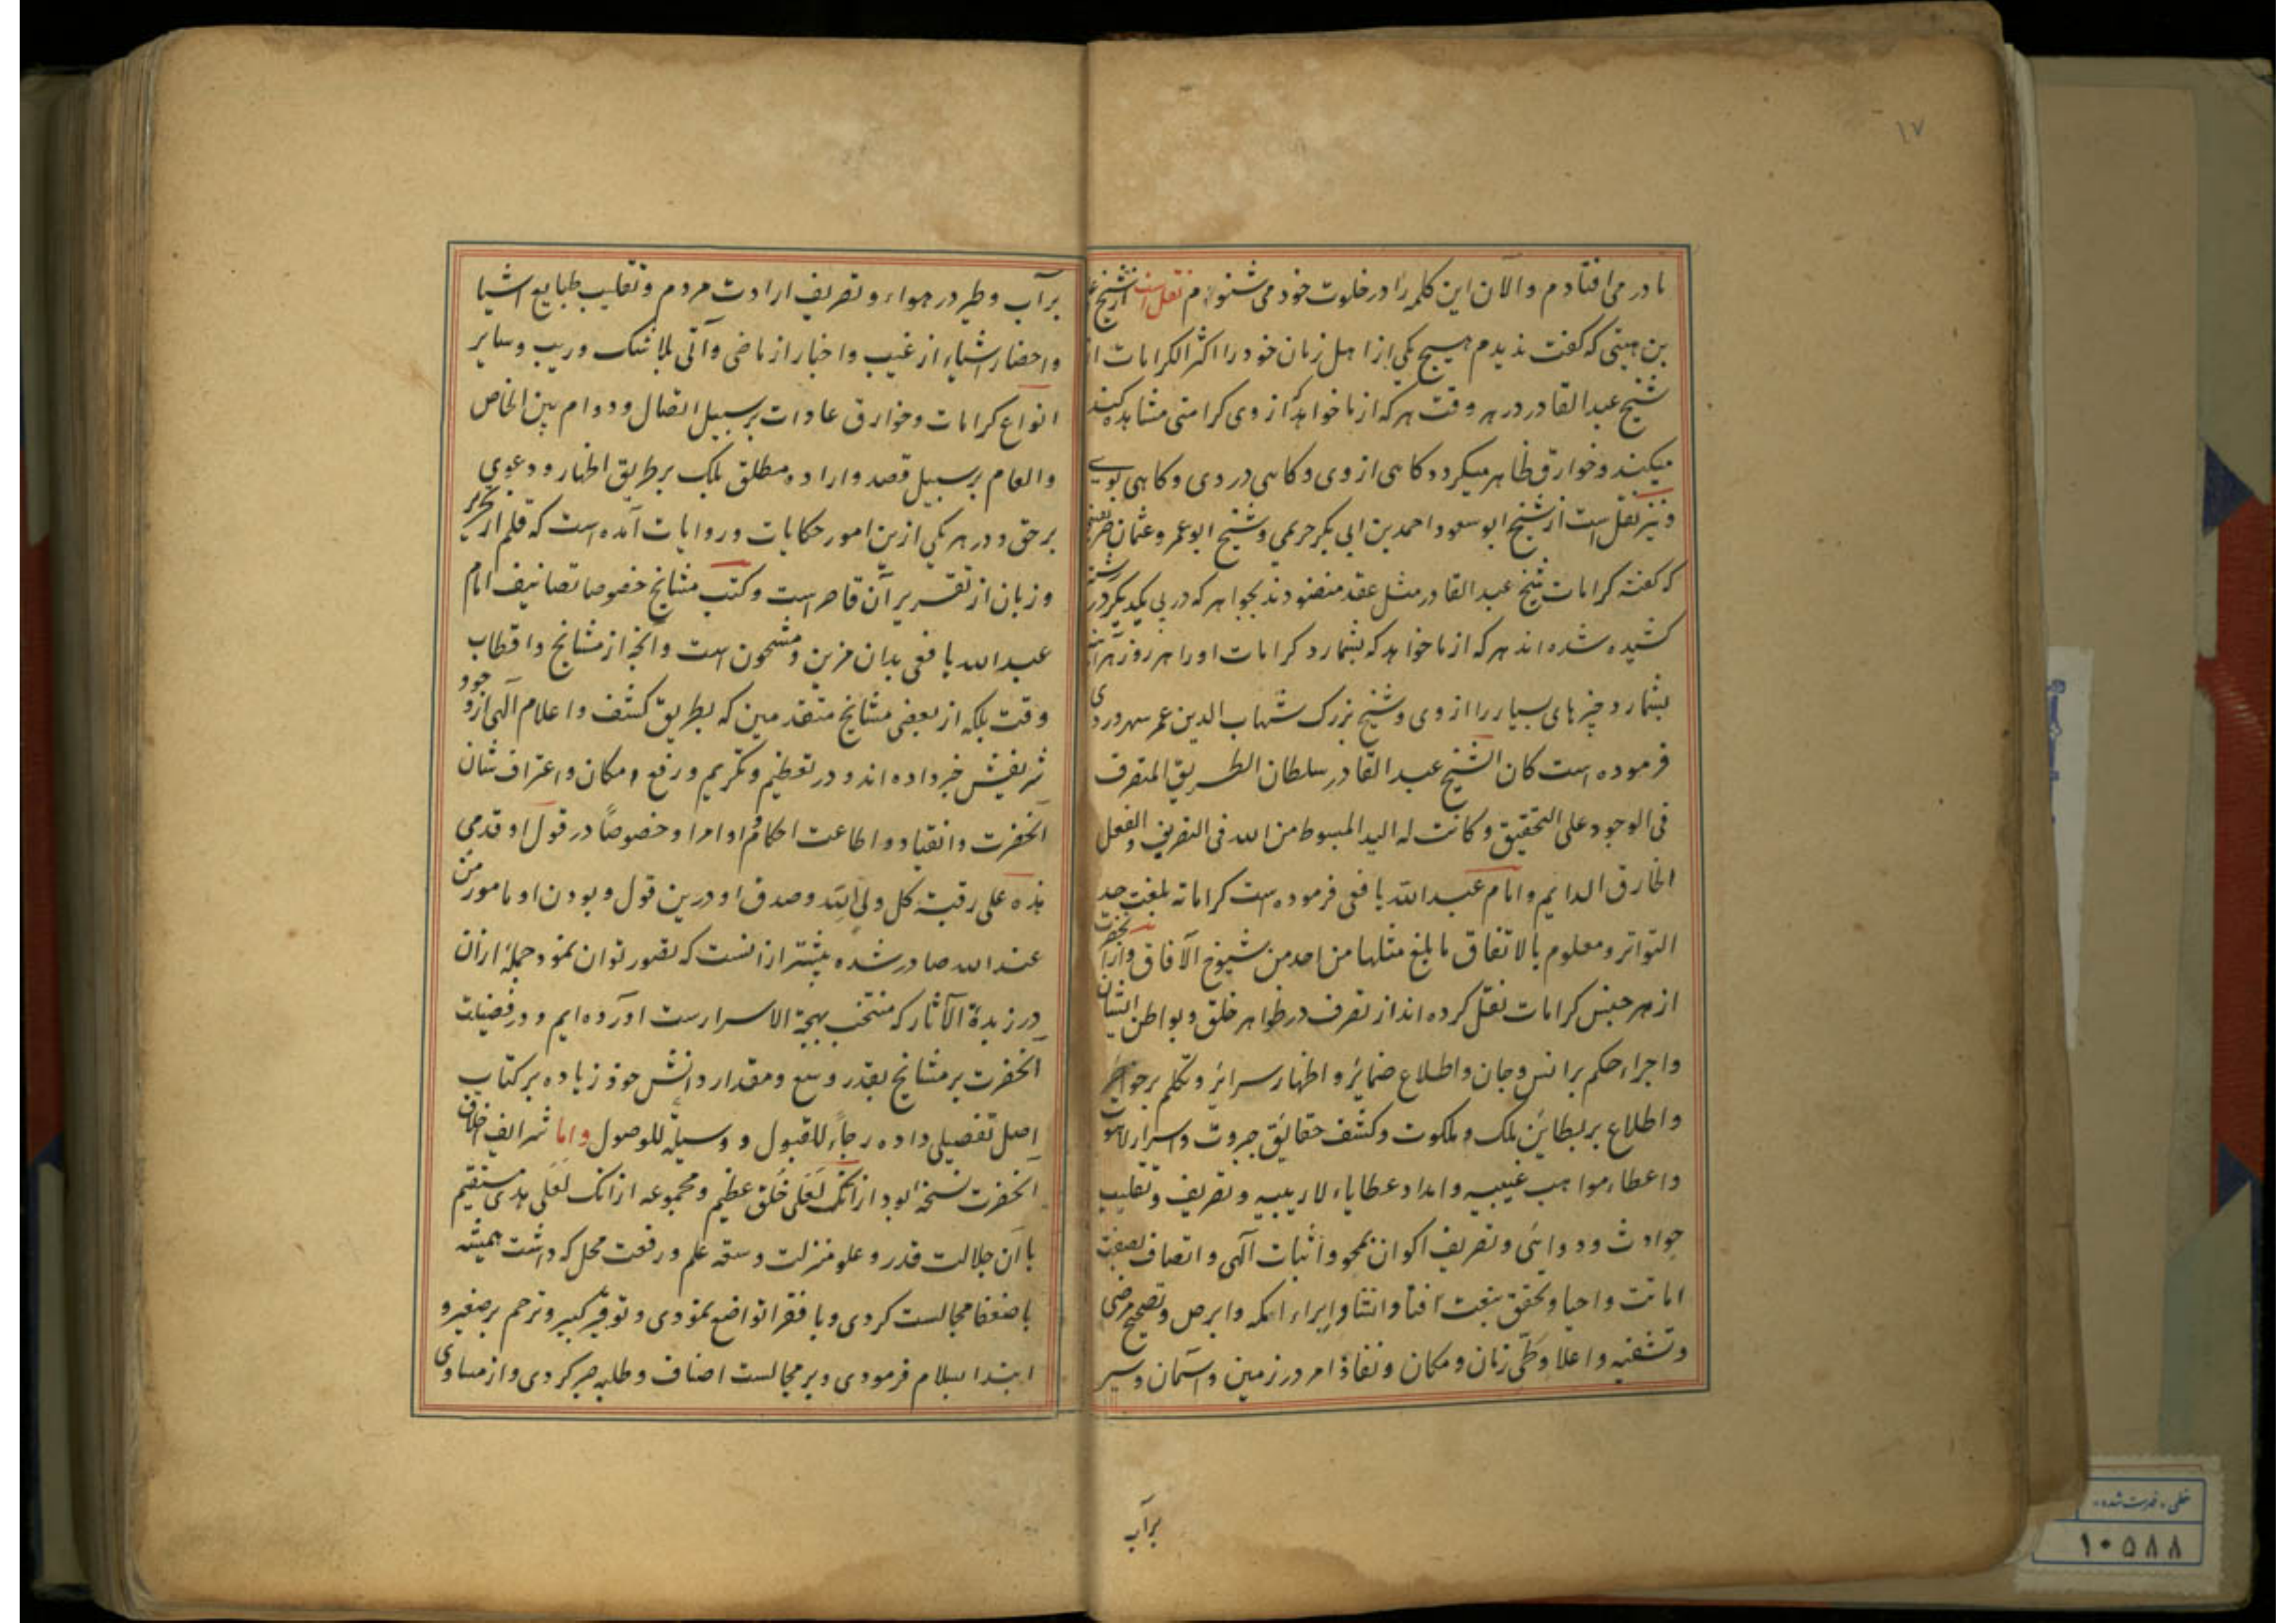 ۱۷
تا در می افتادم و الآن این کلمه را در خلوت خود می شنوم نقل است از شیخ
بن هیتی که گفت ندیدم هیچ یکی از اهل زمان خود را اکثر الکرامات از
شیخ عبدالقادر در هر وقت هر که از ما خواهد از وی کرامتی مشاهده کند
میکند و خوارق ظاهر میگردد گاهی از وی و گاهی در وی و گاهی بوے
و نیز نقل است از شیخ ابو سعود احمد بن ابی بکر حریمی و شیخ ابو عمرو عثمان
که گفته کرامات شیخ عبدالقادر مثل عقد منضود ند بجواهر که در پی یکدیگر در رشته
کشیده شده اند هر که از ما خواهد که بشمارد کرامات او را هر روز هر آینه
بشمارد چیزهای بسیار را از وی و شیخ بزرگ شهاب الدین عمر سهروردی
فرموده است کان الشیخ عبد القادر سلطان الطریق المتصرف
فی الوجود علی التحقیق و کانت له الید المبسوط من الله فی التصریف و الفعل
الخارق الدایم و امام عبدالله یافعی فرموده است کراماته بلغت حد
التواتر و معلوم بالاتفاق ما بلغ مثلها من احد من شیوخ الآفاق و از آنحضرت
از هر جنس کرامات نقل کرده اند از تصرف در ظواهر خلق و بواطن ایشان
و اجراء حکم بر انس و جان و اطلاع ضمائر و اظهار سرائر و تکلم بر خواطر
و اطلاع بر بطاین ملک و ملکوت و کشف حقائق جبروت و اسرار لاهوت
و اعطاء مواهب غیبیه و امداد عطایاء لاریبیه و تصریف و تقلیب
حوادث و دواثی و تصریف اکوان بمحو و اثبات آلهی و اتصاف بصفت
اماتت و احیا و تحقق بنعت افنا و انشا و ابراء اکمه و ابرص و تصحیح مرضی
و تشفیه و اعلا و طی زمان و مکان و نفاذ امر در زمین و آسمان و سیر
برآب
برآب و طیر در هواء و تصریف ارادت مردم و تقلیب طبایع اشیا
و احضار اشیاء از غیب و اخبار از ماضی و آتی بلا شک و ریب و سایر
انواع کرامات و خوارق عادات بر سبیل اتصال و دوام بین الخاص
والعام بر سبیل قصد و اراده مطلق بلک بر طریق اظهار و دعوی
بر حق و در هر یکی ازین امور حکایات و روایات آمده است که قلم از تحریر
و زبان از تقریر آن قاصر است و کتب مشایخ خصوصا تصانیف امام
عبدالله یافعی بدان مزین و مشحون است و آنچه از مشایخ و اقطاب
وقت بلکه از بعضی مشایخ متقدمین که بطریق کشف و اعلام آلهی از وجود
شریفش خبر داده اند و در تعظیم و تکریم و رفع مکان و اعتراف شان
آنحضرت و انقیاد و اطاعت احکام و اوامر او خصوصاً در قول او قدمی
هذه علی رقبة کل ولی لله و صدق او درین قول و بودن او مامور من
عند الله صادر شده بیشتر از آنست که تصور توان نمود جملهٔ از آن
در زبدة الآثار که منتخب بهجة الاسرارست آورده ایم و در فضیلت
آنحضرت بر مشایخ بقدر وسع و مقدار دانش خود زیاده بر کتاب
اصل تفصیلی داده رجاءً للقبول و وسیلةً للوصول و اما شرایف اخلاق
آنحضرت نسخهٔ بود از انک لعلی خلق عظیم و مجموعه از انک لعلی هدی مستقیم
با آن جلالت قدر و علو منزلت و سعة علم و رفعت محل که داشت همیشه
با ضعفا مجالست کردی و با فقرا تواضع نمودی و توقیر کبیر و ترحم بر صغیر و
ابتدا بسلام فرمودی و بر مجالست اصناف و طلبه صبر کردی و از مساوی
خطی، فهرست شده،
۱۰۵۸۸